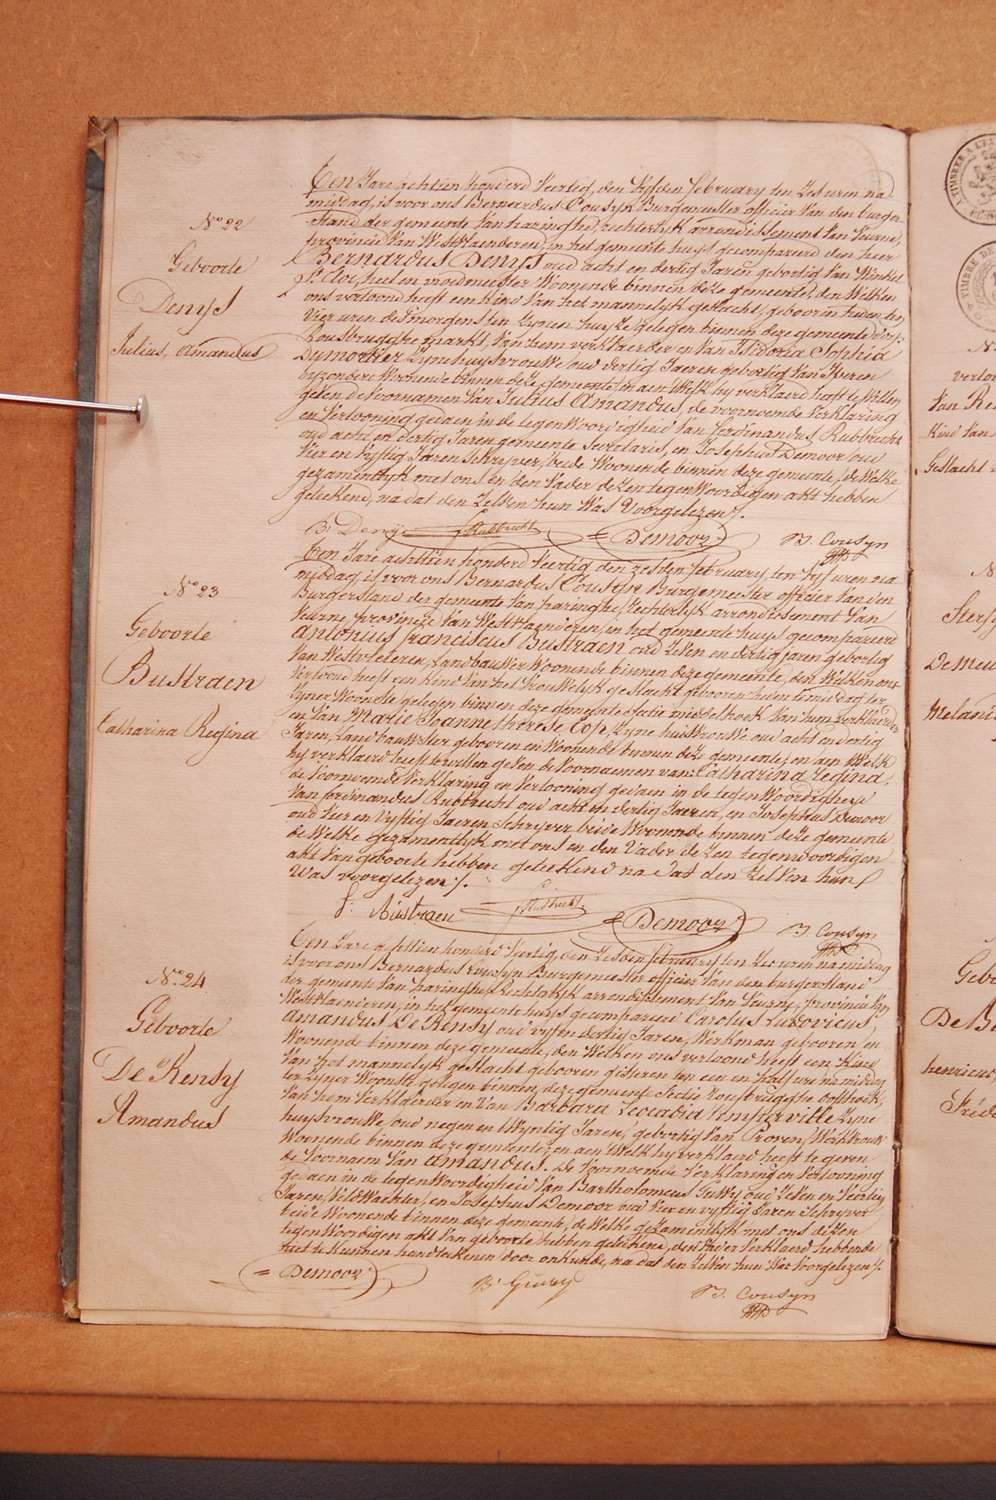 N° 22
Geboorte
Denys
Julius, Amandus
Een Jare achtien honderd veertig, den vyfden february ten zes uren na
middag, is voor ons Bernardus Cousyn Burgemeester officier van den burger
stand der gemeente van haringhe, rechterlyk arrondissement van Veurne,
provincie van Westvlaenderen, in het gemeente huys gecompareerd den heer
Bernardus Denys oud acht en dertig Jaren gebortig van Winkel
St Eloi, heel en vroedmeester Woonende binnen deze gemeente, den Welken
ons vertoond heeft een Kind van het mannelyk geslacht, geboorn heden ten
Vier uren des morgens ten zynen huyze gelegen binnen deze gemeente dorp
Rousbrugghe markt, van hem verklaerder en van Isidoria Sophia
Dumortier Zyne huysvrouwe oud dertig Jaeren gebortig van Iperen
byzondere Woonende binnen deze gemeente en aen Welk hy verklaerd heeft te Willen
geven de voornamen van Julius Amandus, de voornoemde verklaring
en vertooning gedaen in de tegenwoordigheid van Ferdinandus Rubbrecht
oud acht en dertig Jaren gemeente Secretaris, en Josephus Demoor oud
Vier en vyftig Jaren Schryver, beide Woonende binnen deze gemeente, de Welke
gezamentlyk met ons en den vader dezen tegenwoordigen akt hebben
geteekend, na dat den zelven hun Was Voorgelezen /.
B. Denys F. Rubbrecht = Demoor B. Cousyn
N° 23
Geboorte
Bustraen
Catharina Regina
Een Jare achttien honderd veertig den zesden february, ten vyf uren na
middag, is voor ons Bernardus Cousyn Burgemeester officier van den
Burgerstand der gemeente van haringhe, rechterlyk arrondissement van
Veurne, provincie van Westvlaenderen, in het gemeente huys gecompareerd
Antonius franciscus Bustraen oud zeven en dertig jaren gebortig
van Westvleteren, Landbouwer Woonende binnen deze gemeente, den Welken ons
vertoond heeft een Kind van het vrouwelyk geslacht geboren heden te middag ter
zyner Woonste gelegen binnen deze gemeente sectie middelhoek van hem verklaerder
en van Marie Joanne therese Cop, Zyne huisvrouwe oud acht en dertig
Jaren, Landbouwster geboren en Woonende binnen deze gemeente, en aen Welk
hy verklaerd heeft te willen geven de voornaemen van: Catharina Regina,
de voornoemde verklaring en vertooning gedaen in de tegenwoordigheyd
van ferdinandus Rubbrecht oud acht en dertig Jaeren, en Josephus Demoor
oud Vier en Vyftig Jaeren Schryver beide Woonende binnen deze gemeente
de Welke gezamentlyk met ons en den Vader dezen tegenwoordigen
akt van geboorte hebben geteekend na dat den zelven hun
Was voorgelezen /.
f: Bustraen F. Rubbrecht = Demoor B. Cousyn
N° 24
Geboorte
De Rensy
Amandus
Een Jare achttien honderd veertig, den zesden february ten zes uren na middag
is voor ons Bernardus Cousyn Burgemeester officier van den burgerstand
der gemeente van haringhe, Rechterlyk arrondissement van Veurne, provincie van
Westvlaenderen, in het gemeente huys gecompareerd Carolus Ludovicus,
Amandus De Rensy oud vyf en dertig Jaren, Werkman geboren en
Woonende binnen deze gemeente, den Welken ons vertoond heeft een Kind
van het mannelyk geslacht geboren gisteren ten een en half ure na middag
ter zyner Woonste gelegen binnen deze gemeente Sectie Rousbrugghe oosthoek,
van hem verklaerder en van Barbara Leocadia Zyne
huysvrouwe, oud negen en twyntig Jaren, gebortig van Proven, Werkvrouw
Woonende binnen deze gemeente, en aen Welk hy verklaerd heeft te geven
de Voornaem van Amandus. De Voornoemde verklaring en vertooning
gedaen in de tegenwoordigheid van Bartholomeus Guwy oud zeven en veertig
Jaren, Veldwachter, en Josephus Demoor oud vier en vyftig Jaren Schryver
beide Woonende binnen deze gemeente, de Welke gezamentlyk met ons dezen
tegenwoordigen akt van geboorte hebben geteekend, den vader verklaerd hebbende
niet te kunnen handteekenen door onkunde, na dat den zelven hun Was Voorgelezen /.
= Demoor B. Guwy B. Cousyn
N°
vertoo
van Re
Kind van
Geslacht
N°
Sterf
De Meu
Melani
Gebo
De B
henricus
Fréd